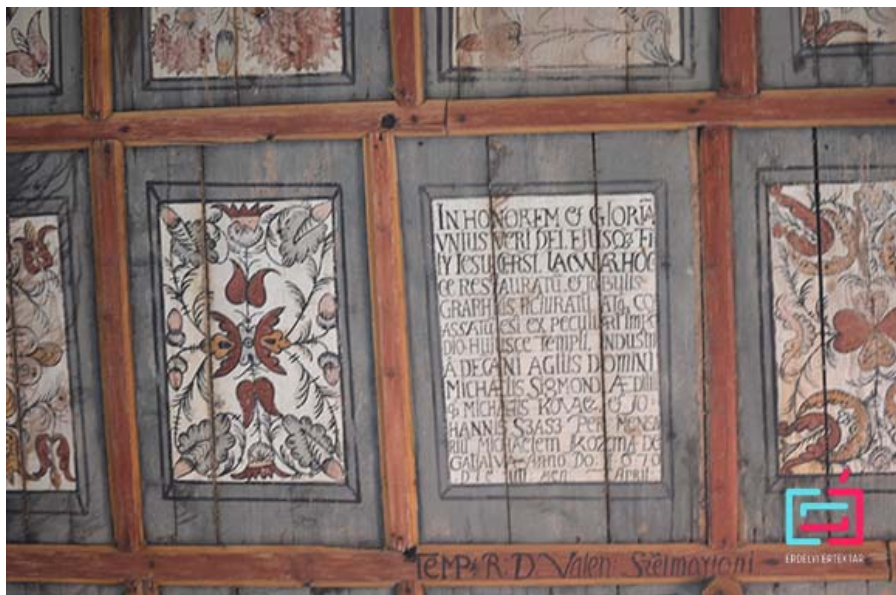 IN HONOREM & GLORIA
VNIUS VERI DEI, EIUSQ; FI
LY IESU CHRSI. LACWAR HOC
CE RESTAURATŪ, & TABULIS
GRAPHICIS PICTURATŪ ATQ, CO
ASSATŪ EST EX PECULIARI IMPE
DIO HUIUSCE TEMPLI, INDUSTRI
A DECANI AGILIS DOMINI
MICHAELIS SIGMOND, ÆDILI
MICHAELIS KOVACZ, & JO
HANNIS SZASZ PER MENSA
RIŪ MICHAELEM KOZMA DE
GALFALVA ANNO DO 1670
DIE APRIL
TEMP; R. D. Valen: Szelmarjani
ERDÉLYI ÉRTÉKTÁR